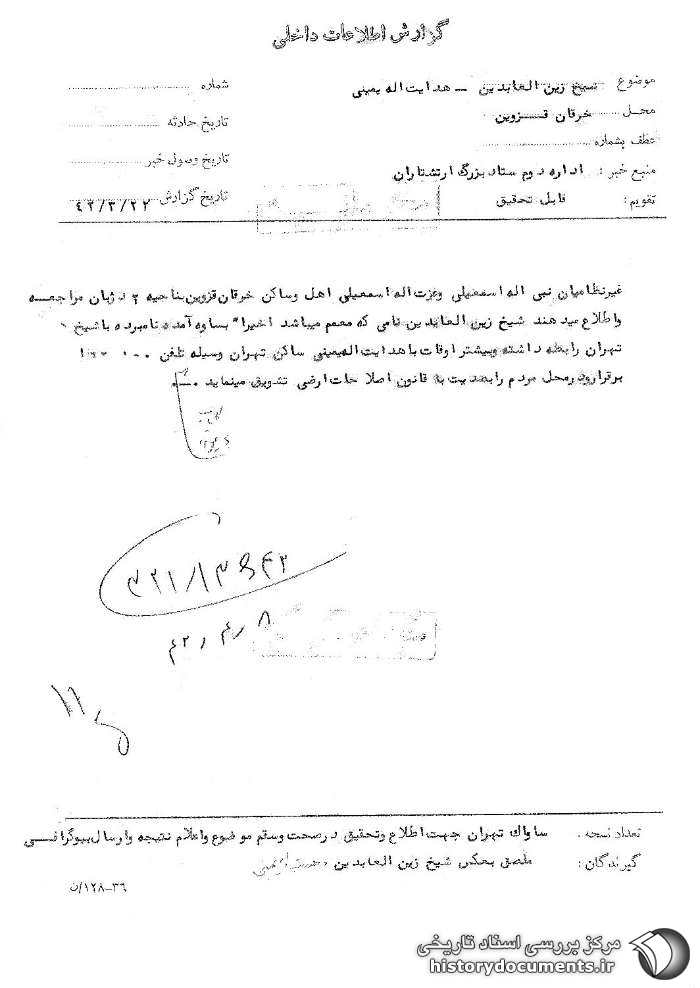 گزارش اطلاعات داخلی
موضوع شیخ زین العابدین - هدایت اله یمینی
شماره
محل خرقان قزوین
تاریخ حادثه
عطف بشماره
تاریخ وصول خبر
منبع خبر : اداره دوم ستاد بزرگ ارتشتاران
تاریخ گزارش ۴۲/۳/۲۲
تقویم : قابل تحقیق
غیرنظامیان نبی اله اسمعیلی وعزت اله اسمعیلی اهل وساکن خرقان قزوین بناحیه ۲ دژبان مراجعه
واطلاع میدهند شیخ زین العابدین نامی که معمم میباشد اخیرا" بساوه آمده نامبرده باشیخ
تهران رابطه داشته وبیشتر اوقات با هدایت اله یمینی ساکن تهران وسیله تلفن
برقرارودرمحل مردم رابضدیت به قانون اصلاحات ارضی تشویق مینماید
۳۲۱/۱۳۶۴۲
۴۲ ر ۴ ر ۸
تعداد نسخه . ساواك تهران جهت اطلاع وتحقیق درصحت وسقم موضوع واعلام نتیجه وارسال بیوگرافی
گیرندگان : ملصق بعکس شیخ زین العابدین
۳۶-۱۲۸/ن
مرکز بررسی اسناد تاریخی
historydocuments.ir